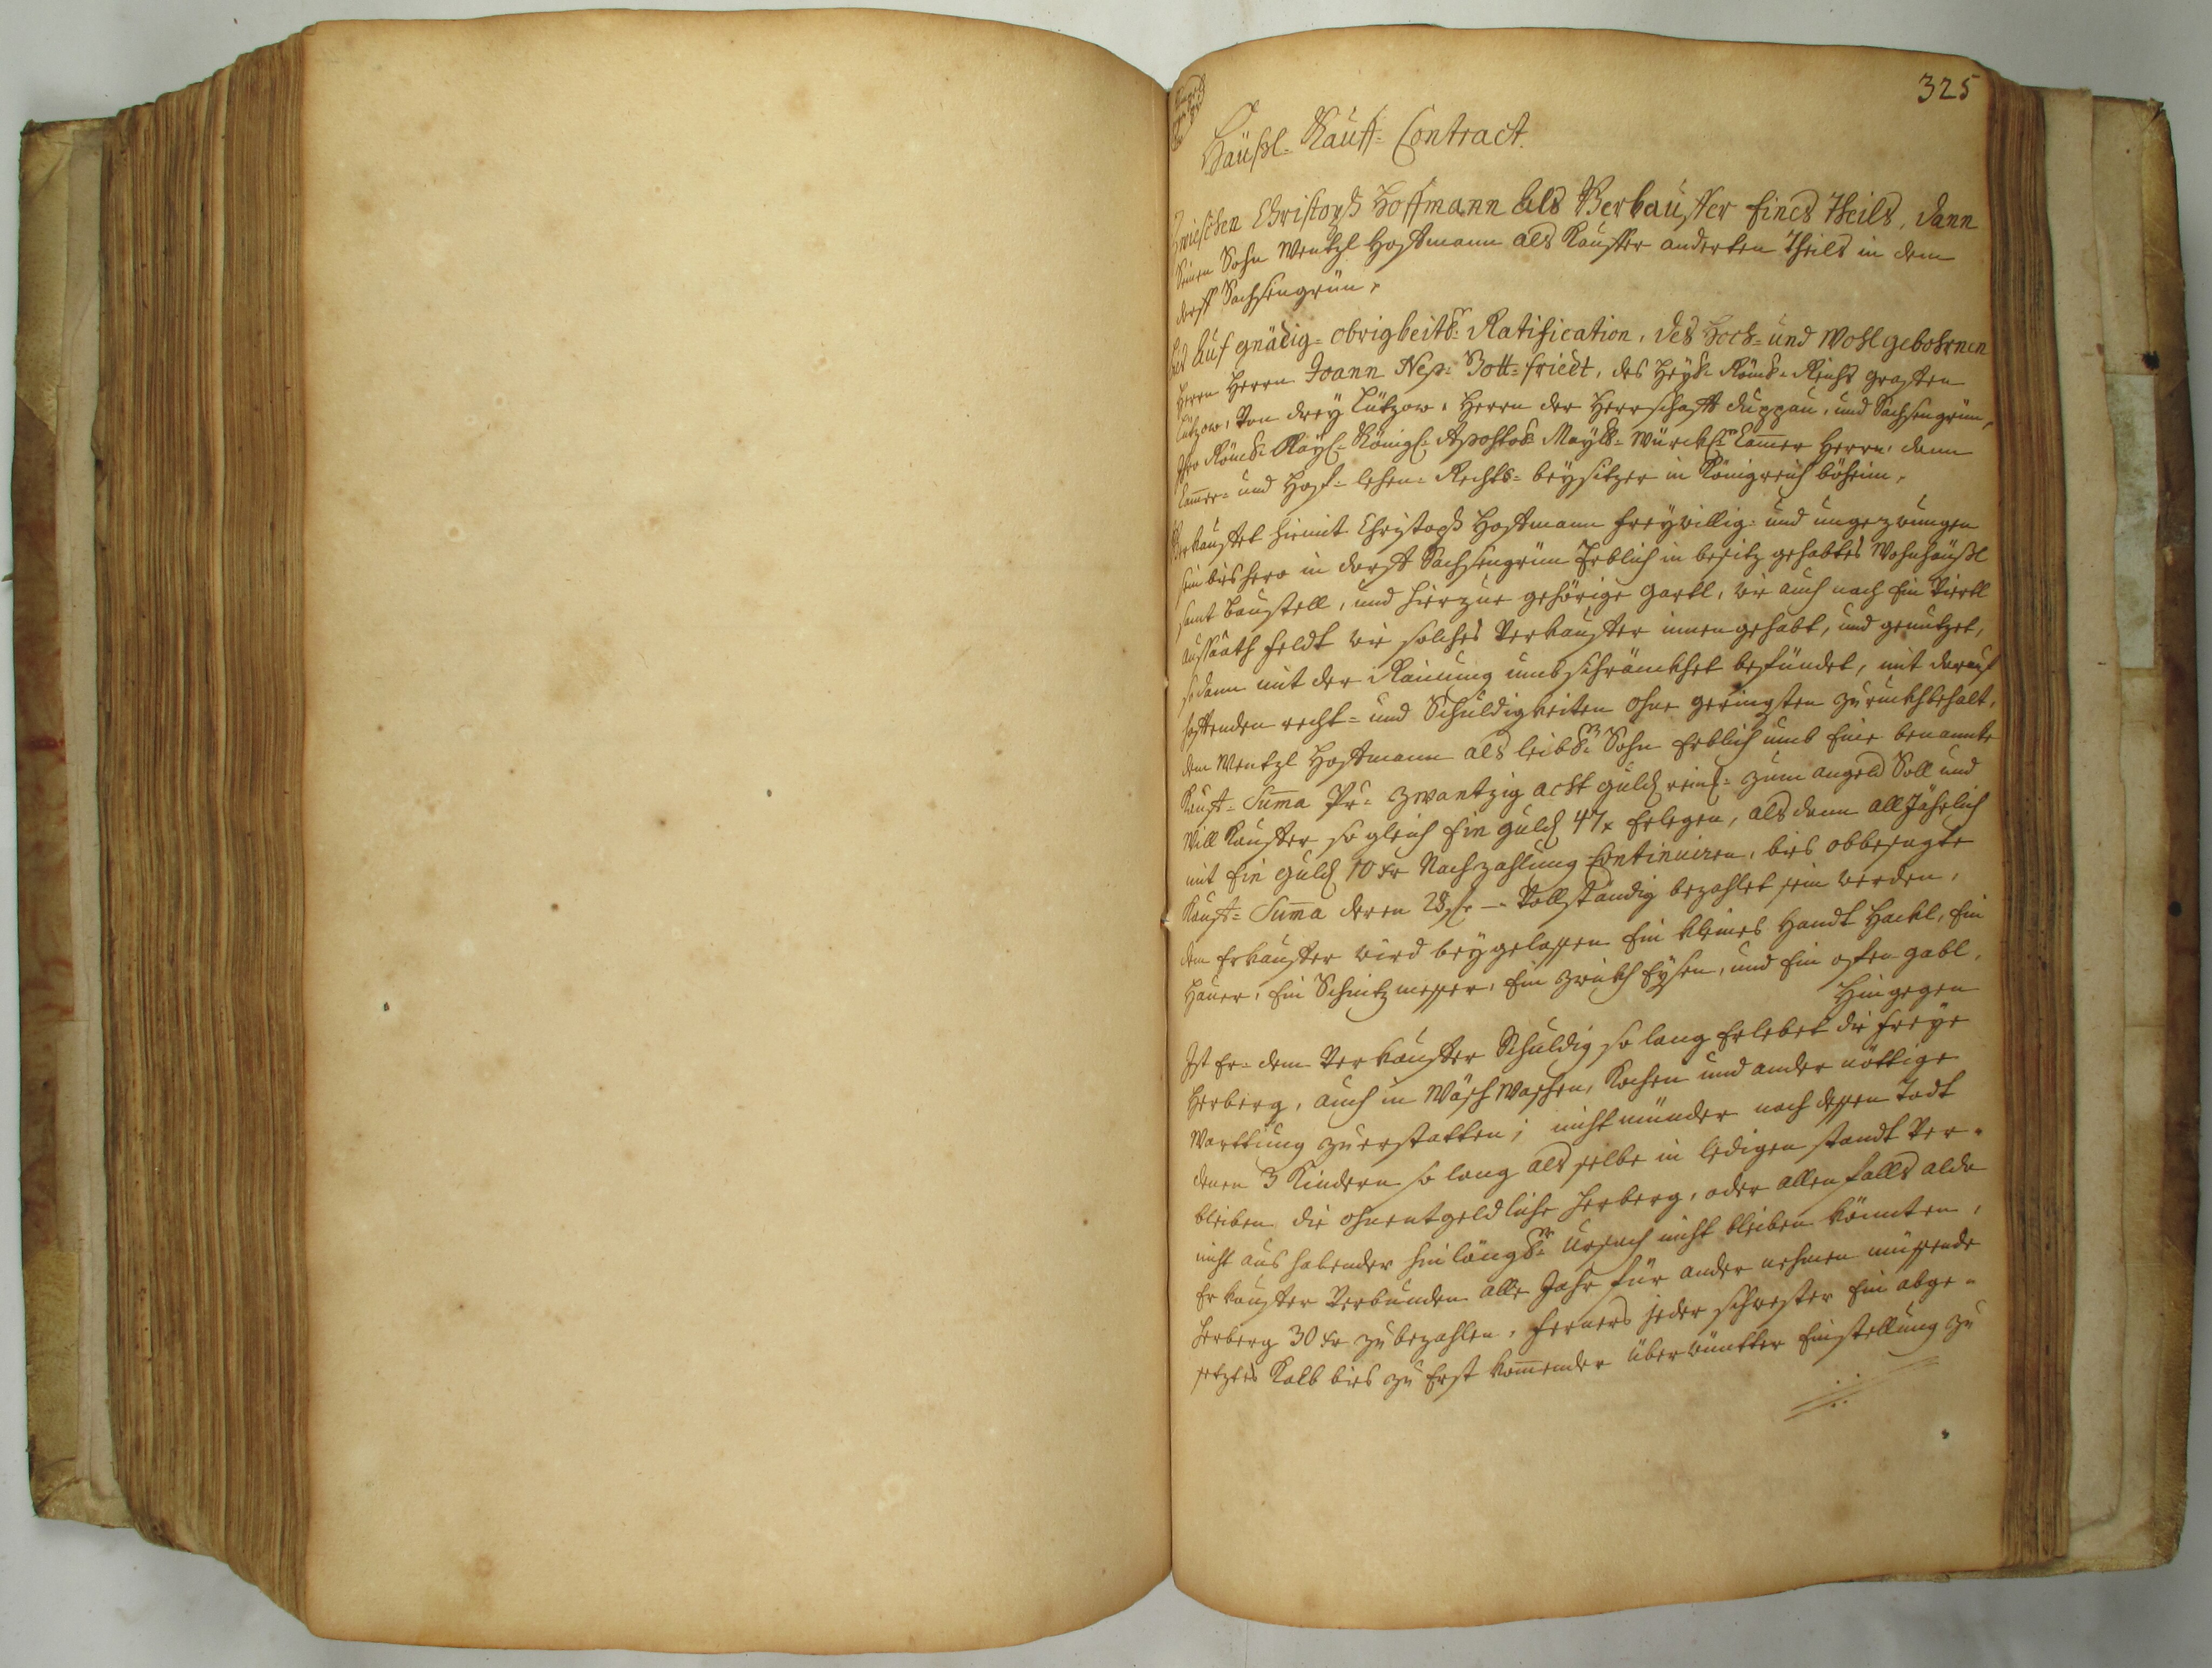 325
Häußl- Kauff- Contract.
Zwieschen Christoph Hoffmann als Verkauffer Eines Theils, dann
Seinen Sohn Wentzl Hoffmann als Kauffer anderten Theils in dem
dorff Sachsengrün,
Auf gnädig- obrigkeitl: Ratification, des Hoch- und Wohlgebohrnen
Herrn Herrn Joann Nep: Gott-friedt, des Heyl: Röml: Reichs Graffen
Lützow, Von drey Lützow, Herrn der Herrschafft Duppau, und Sachsengrün,
Ihro Röml: Kayl: Königl: Apostol: Mayst: Würckl: Cammer Herrn, dann
Cammer- und Hoff- lehen- Rechts- beysitzer in Königreich böheim,
Verkauffet hiemit Christoph Hoffmann freywillig- und ungezwungen
sein bishero in dorff Sachsengrün Erblich in besitz gehabtes Wohnhäußl
samt baustell, und hierzue gehörige gartl, wie auch noch Ein Viertl
Aussaath feldt wie solches Verkauffer innen gehabt, und genutzet,
sodann mit der Rainung umbschränckhet befündet, mit darauf
hafftenden recht- und Schuldigkeiten ohne geringsten zuruckhbehalt,
dem Wentzl Hoffmann als leibl: Sohn Erblich umb Eine benannte
Kauff- Summa Pr: zwantzig acht guld reinl: zum angeld Soll und
Will Kauffer so gleich Ein guld 47 x Erlegen, als dann all Jährlich
mit Ein guld 10 xr Nachzahlung Continuiren, bies obbesagte
Kauff- Summa deren 28 f — Vollständig bezahlet sein werden,
dem Erkauffer wird beygelassen Ein kleines Handt Hackl, Ein
Hauer, Ein Schnitzmesser, Ein zwickh Eysen, und Ein ofen gabl,
Hingegen
Ist Er- dem Verkauffer Schuldig so lang Erlebet die freye
Herberg, auch in Wäsch Waschen, Kochen und ander nöttige
Warttung zuerstatten; nicht münder nach dessen Todt
denen 3 Kindern so lang als selbe in ledigen standt Ver-
bleiben, die ohnentgeldliche Herberg, oder allenfalls alda
nicht aus habender hinlängl: Ursach nicht bleiben könnten,
Erkauffer Verbunden alle Jahr für ander nehmen müssende
Herberg 30 xr zu bezahlen, ferners jeder schwester Ein abge-
setztes Kalb bies zu Erst kommender überwüntter Einstellung zu